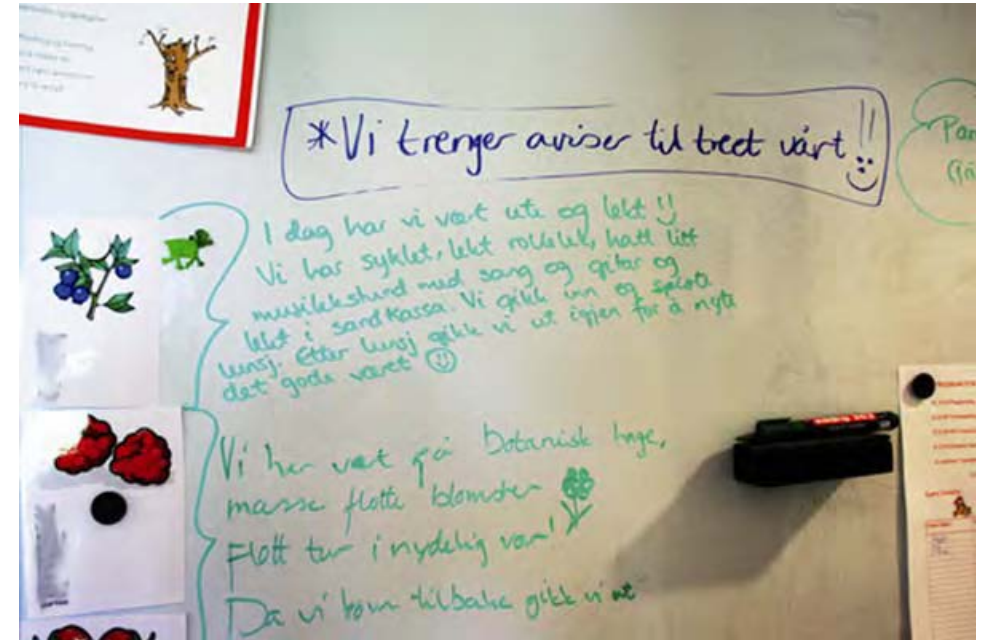 *Vi trenger aviser til treet vårt!!
I dag har vi vært ute og lekt!!
Vi har syklet, lekt rollelek, hatt litt
musikkstund med sang og gitar og
lekt i sandkassa. Vi gikk inn og spiste
lunsj. Etter lunsj gikk vi ut igjen for å nyte
det gode været
Vi har vært på Botanisk hage,
masse flotte blomster
Flott tur i nydelig vær!
Da vi kom tilbake gikk vi ut